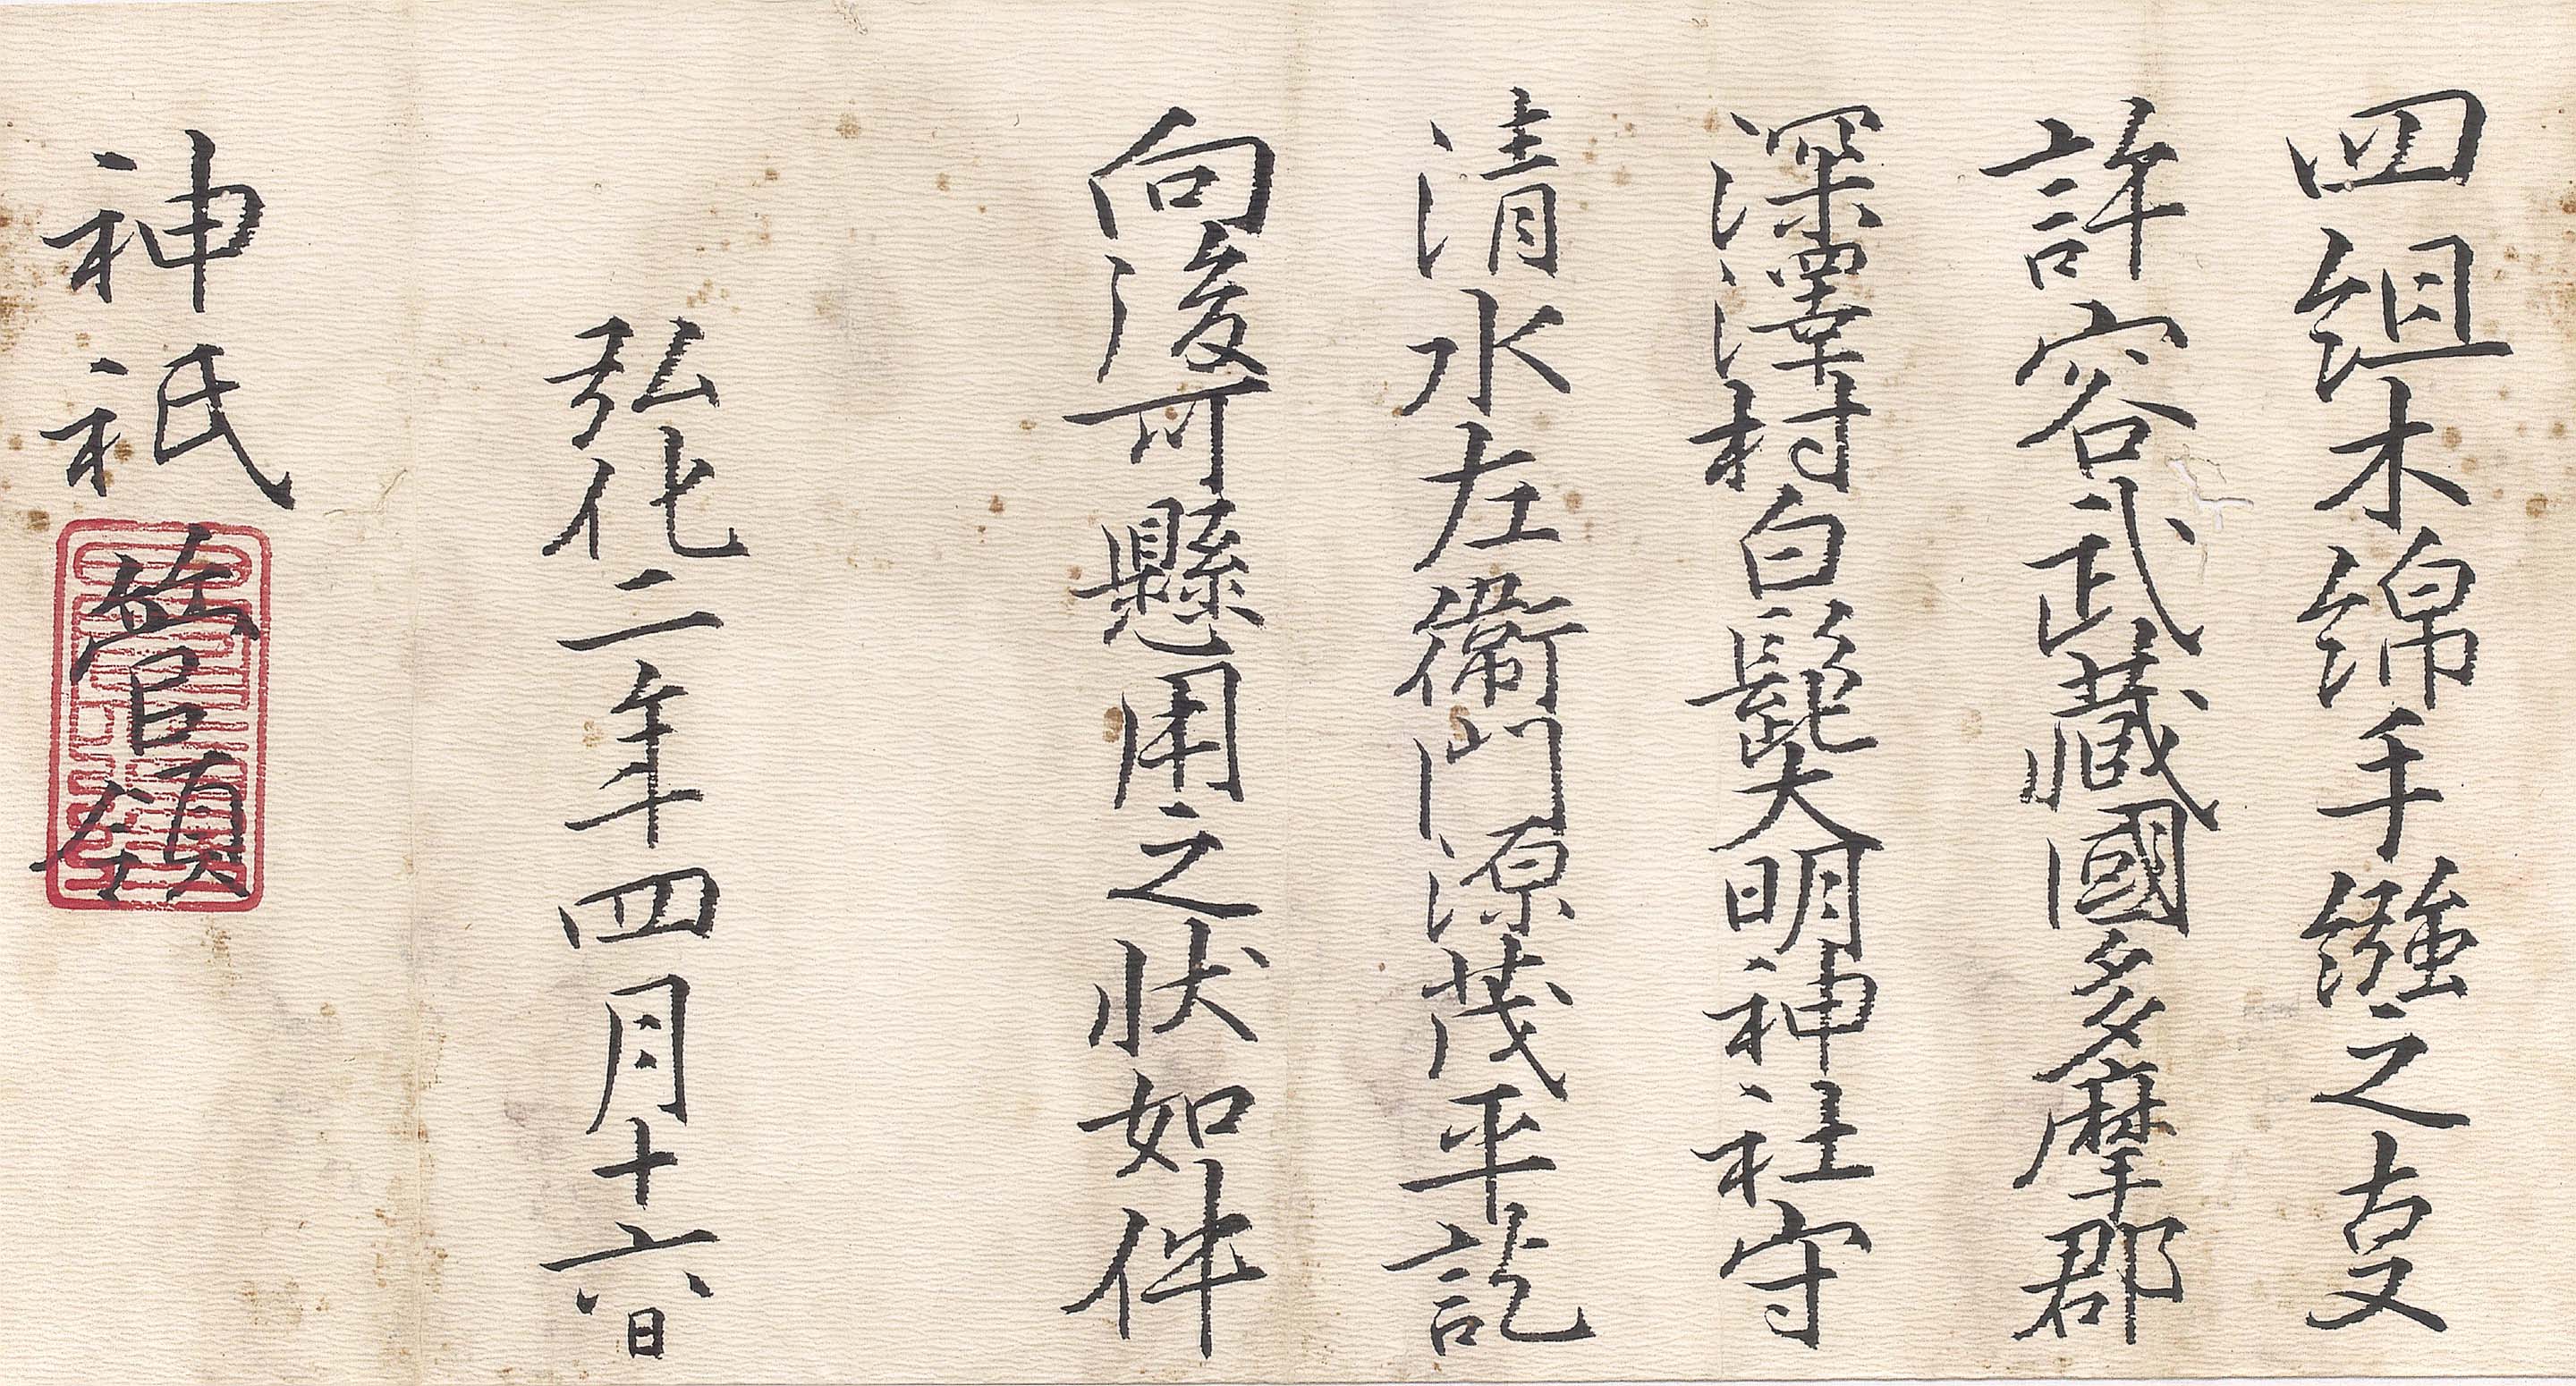 四組木綿手繦之𠮷
許容武藏國多摩郡
深澤村白髭大明神社守
清水左衞門源茂平訖
向後可懸用之状如件
弘化二年四月十六日
神祇管領